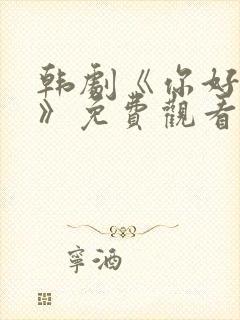 韩劇《你好
》免費觀看
寧酒